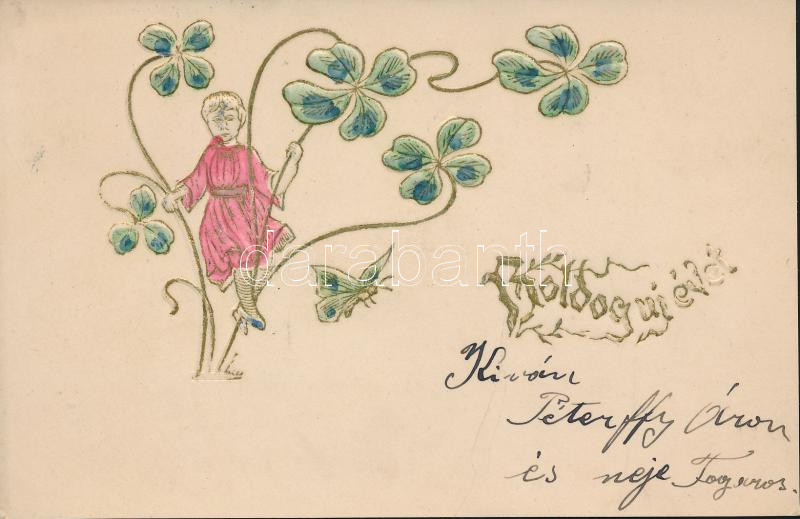 Boldog új évet
darabanth
Kiván
Péterffy Áron
és neje Fogaros.